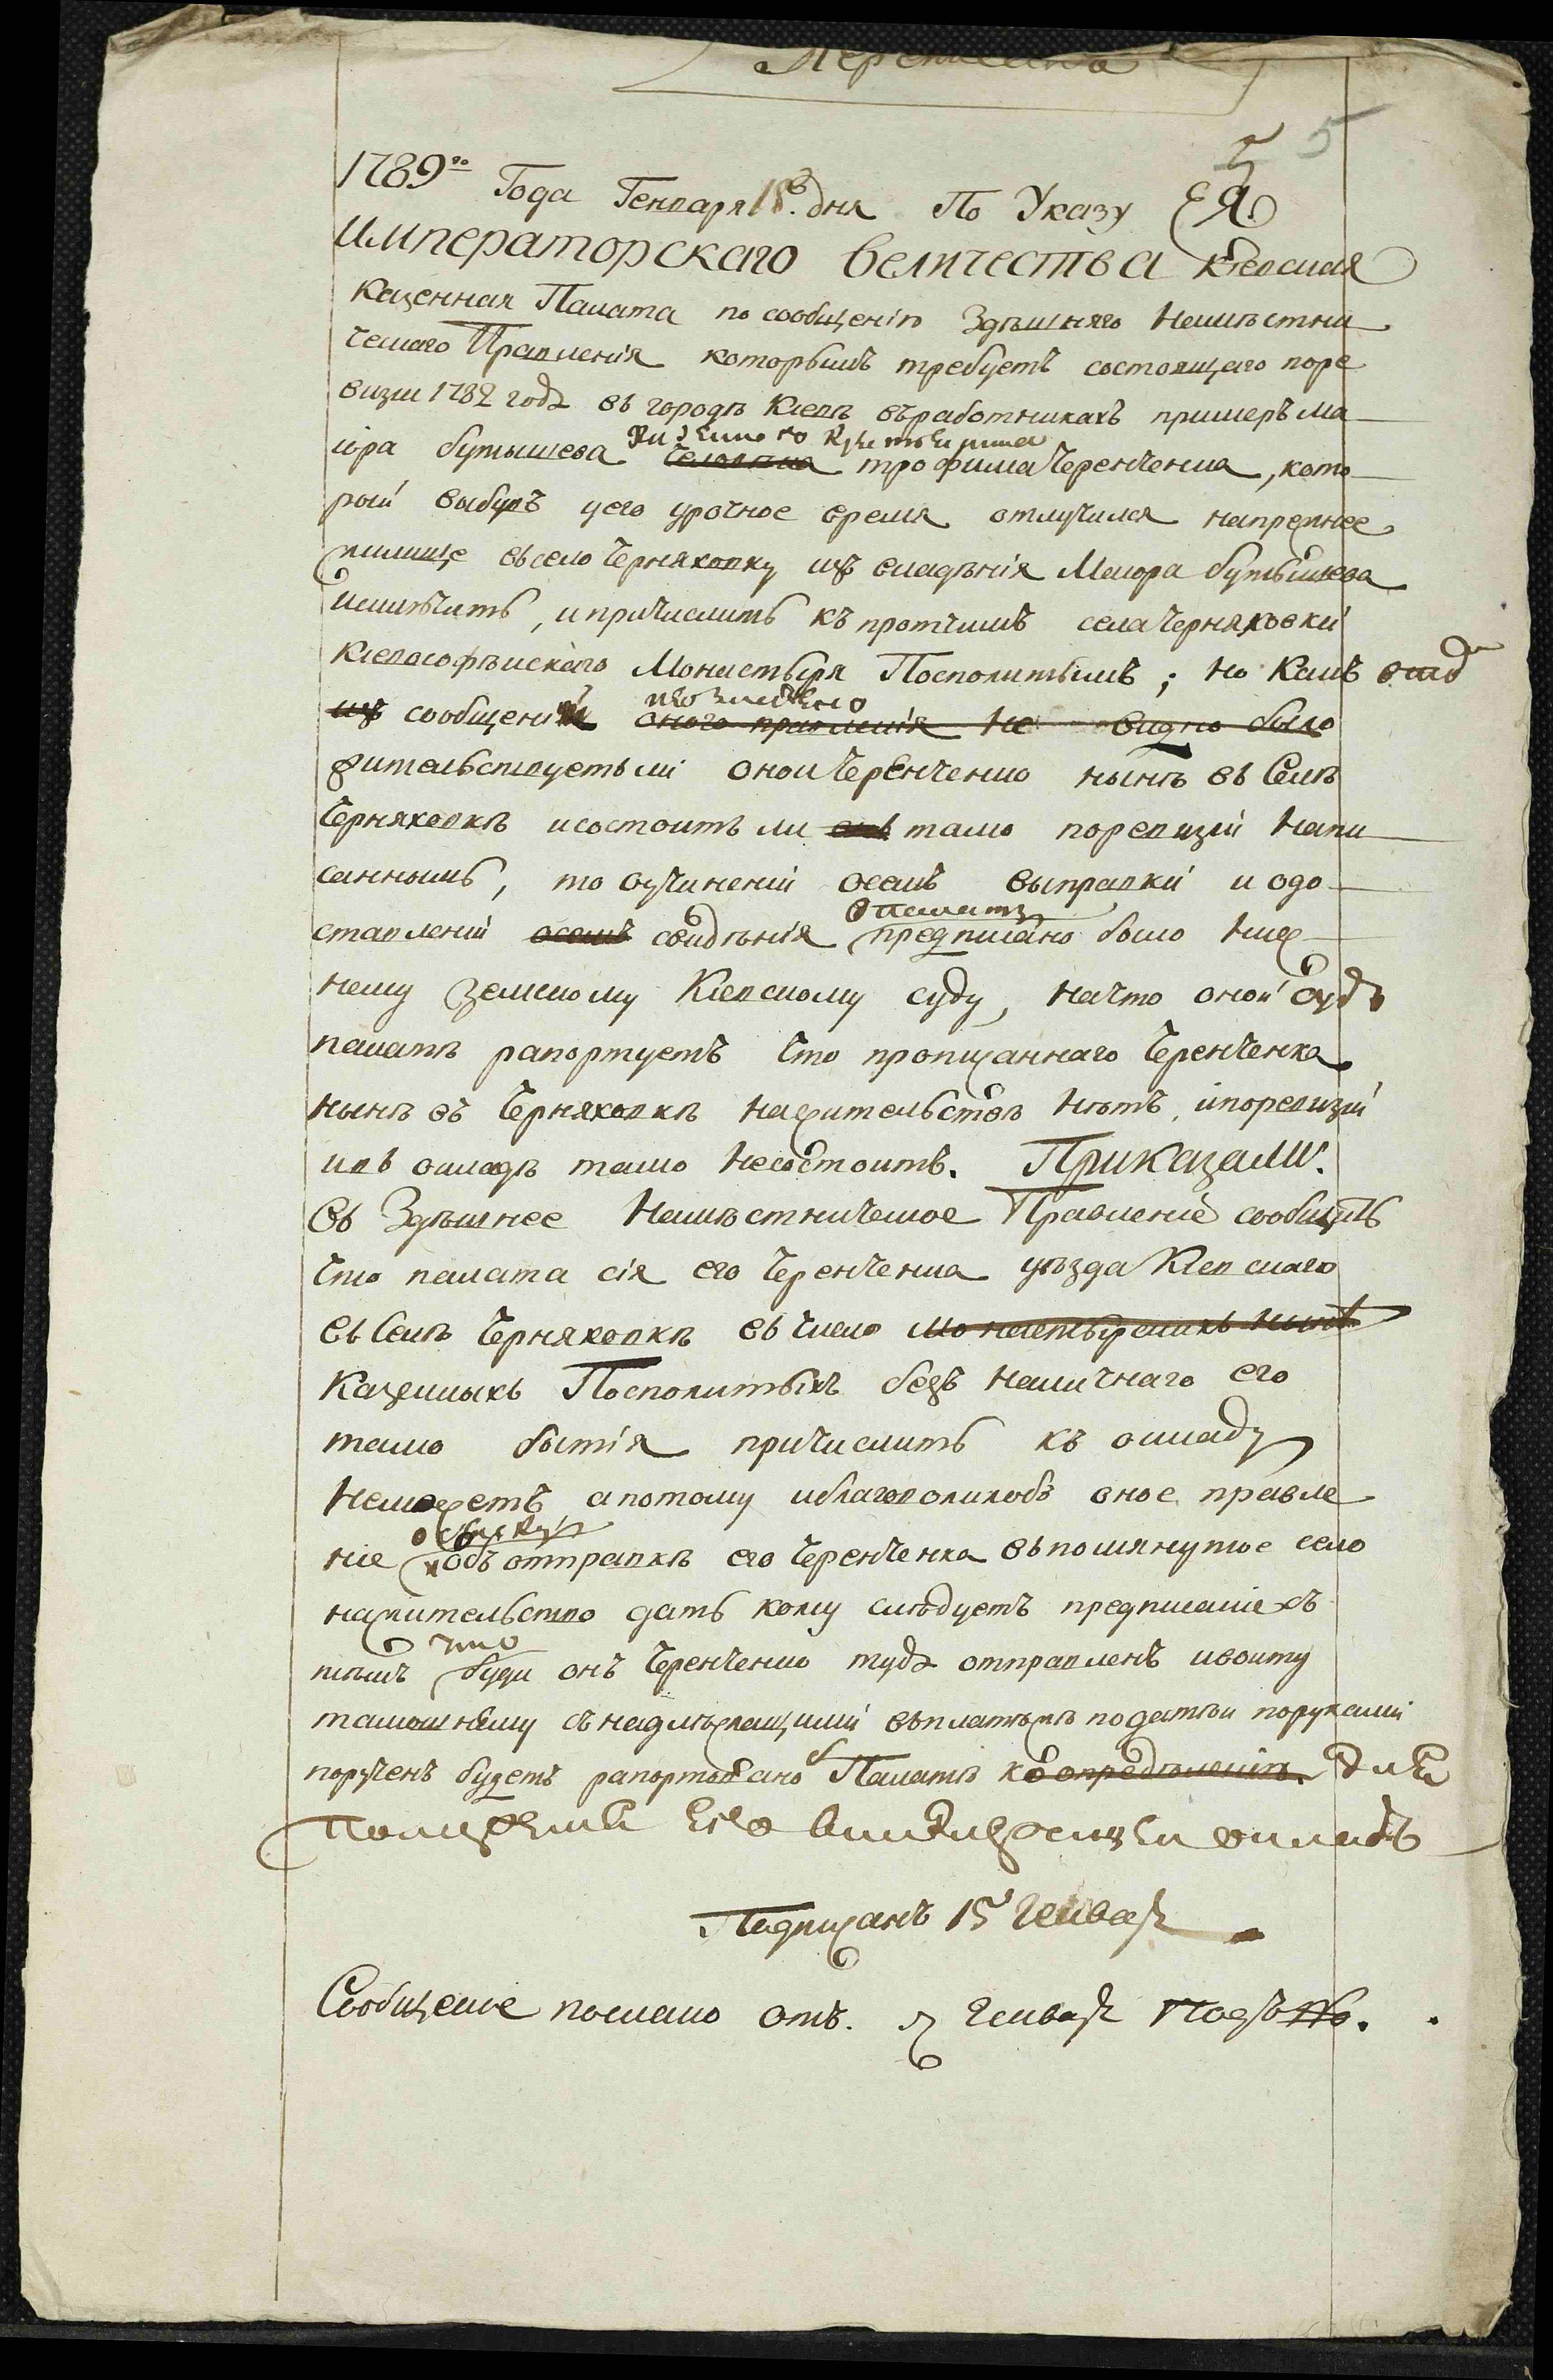 Переписана
5 5
1789го Года Генваря 18. дня По Указу ЕЯ
Императорскаго Величества Киевская
Казенная Палата по сообщенію Здешняго Намѣстни
ческаго Правленія которымъ требуетъ состоящаго поре
визіи 1782 года въ городѣ Киевѣ въработникахъ примеръ ма
іора бутышева
человека трофима Черенченка, кото
рый выбувъ у его урочное время отлучился напрежнее
жилище въ село Черняховку изъ владѣнія Маіора бутышева
исключить, и причислить къ протчимъ села Черняховки
Киевософѣискаго Монастыря Посполитымъ; но Какъ
изъ сообщенія оного правленія не видно было
жительствуетъ ли оной Черенченко нынѣ въ Селѣ
Черняховкѣ исостоитъ ли онъ тамо поревизіи напи
саннымъ, то оучиненіи осемъ выправки и одо
ставленіи осемъ свидѣнія
в палату
предписано было ниж
нему земскому Киевскому суду, начто оной судъ
палатѣ рапортуетъ Что прописаннаго Черенченка
нынѣ въ Черняховкѣ нажительствѣ нѣтъ, ипоревизіи
ивъ окладѣ тамо несостоитъ. Приказали.
Въ Здѣшнее Намѣстническое Правленіе сообщить
Что палата сія его Черенченка уѣзда Киевскаго
въ Селѣ Черняховкѣ въ число монастырскихъ нынѣ
Казенныхъ Посполитыхъ безъ наличнаго его
тамо бытія причислить къ окладу
неможетъ а потому иблаговолилобъ оное правле
ніе
о сыску
и объ отправкѣ его Черенченка въ помянутое село
нажительство дать кому слѣдуетъ предписаніе съ
тѣмъ
что
буди онъ Черенченко туда отправленъ ивоиту
тамошнему снадлежащими въплатежѣ податѣи поруками
порученъ будетъ рапортовано Палатѣ ко опредѣленію. для
положенія Его в окладъ
Подписанъ 15 Генваря
Сообщеніе послано отъ. Генваря подъ №.